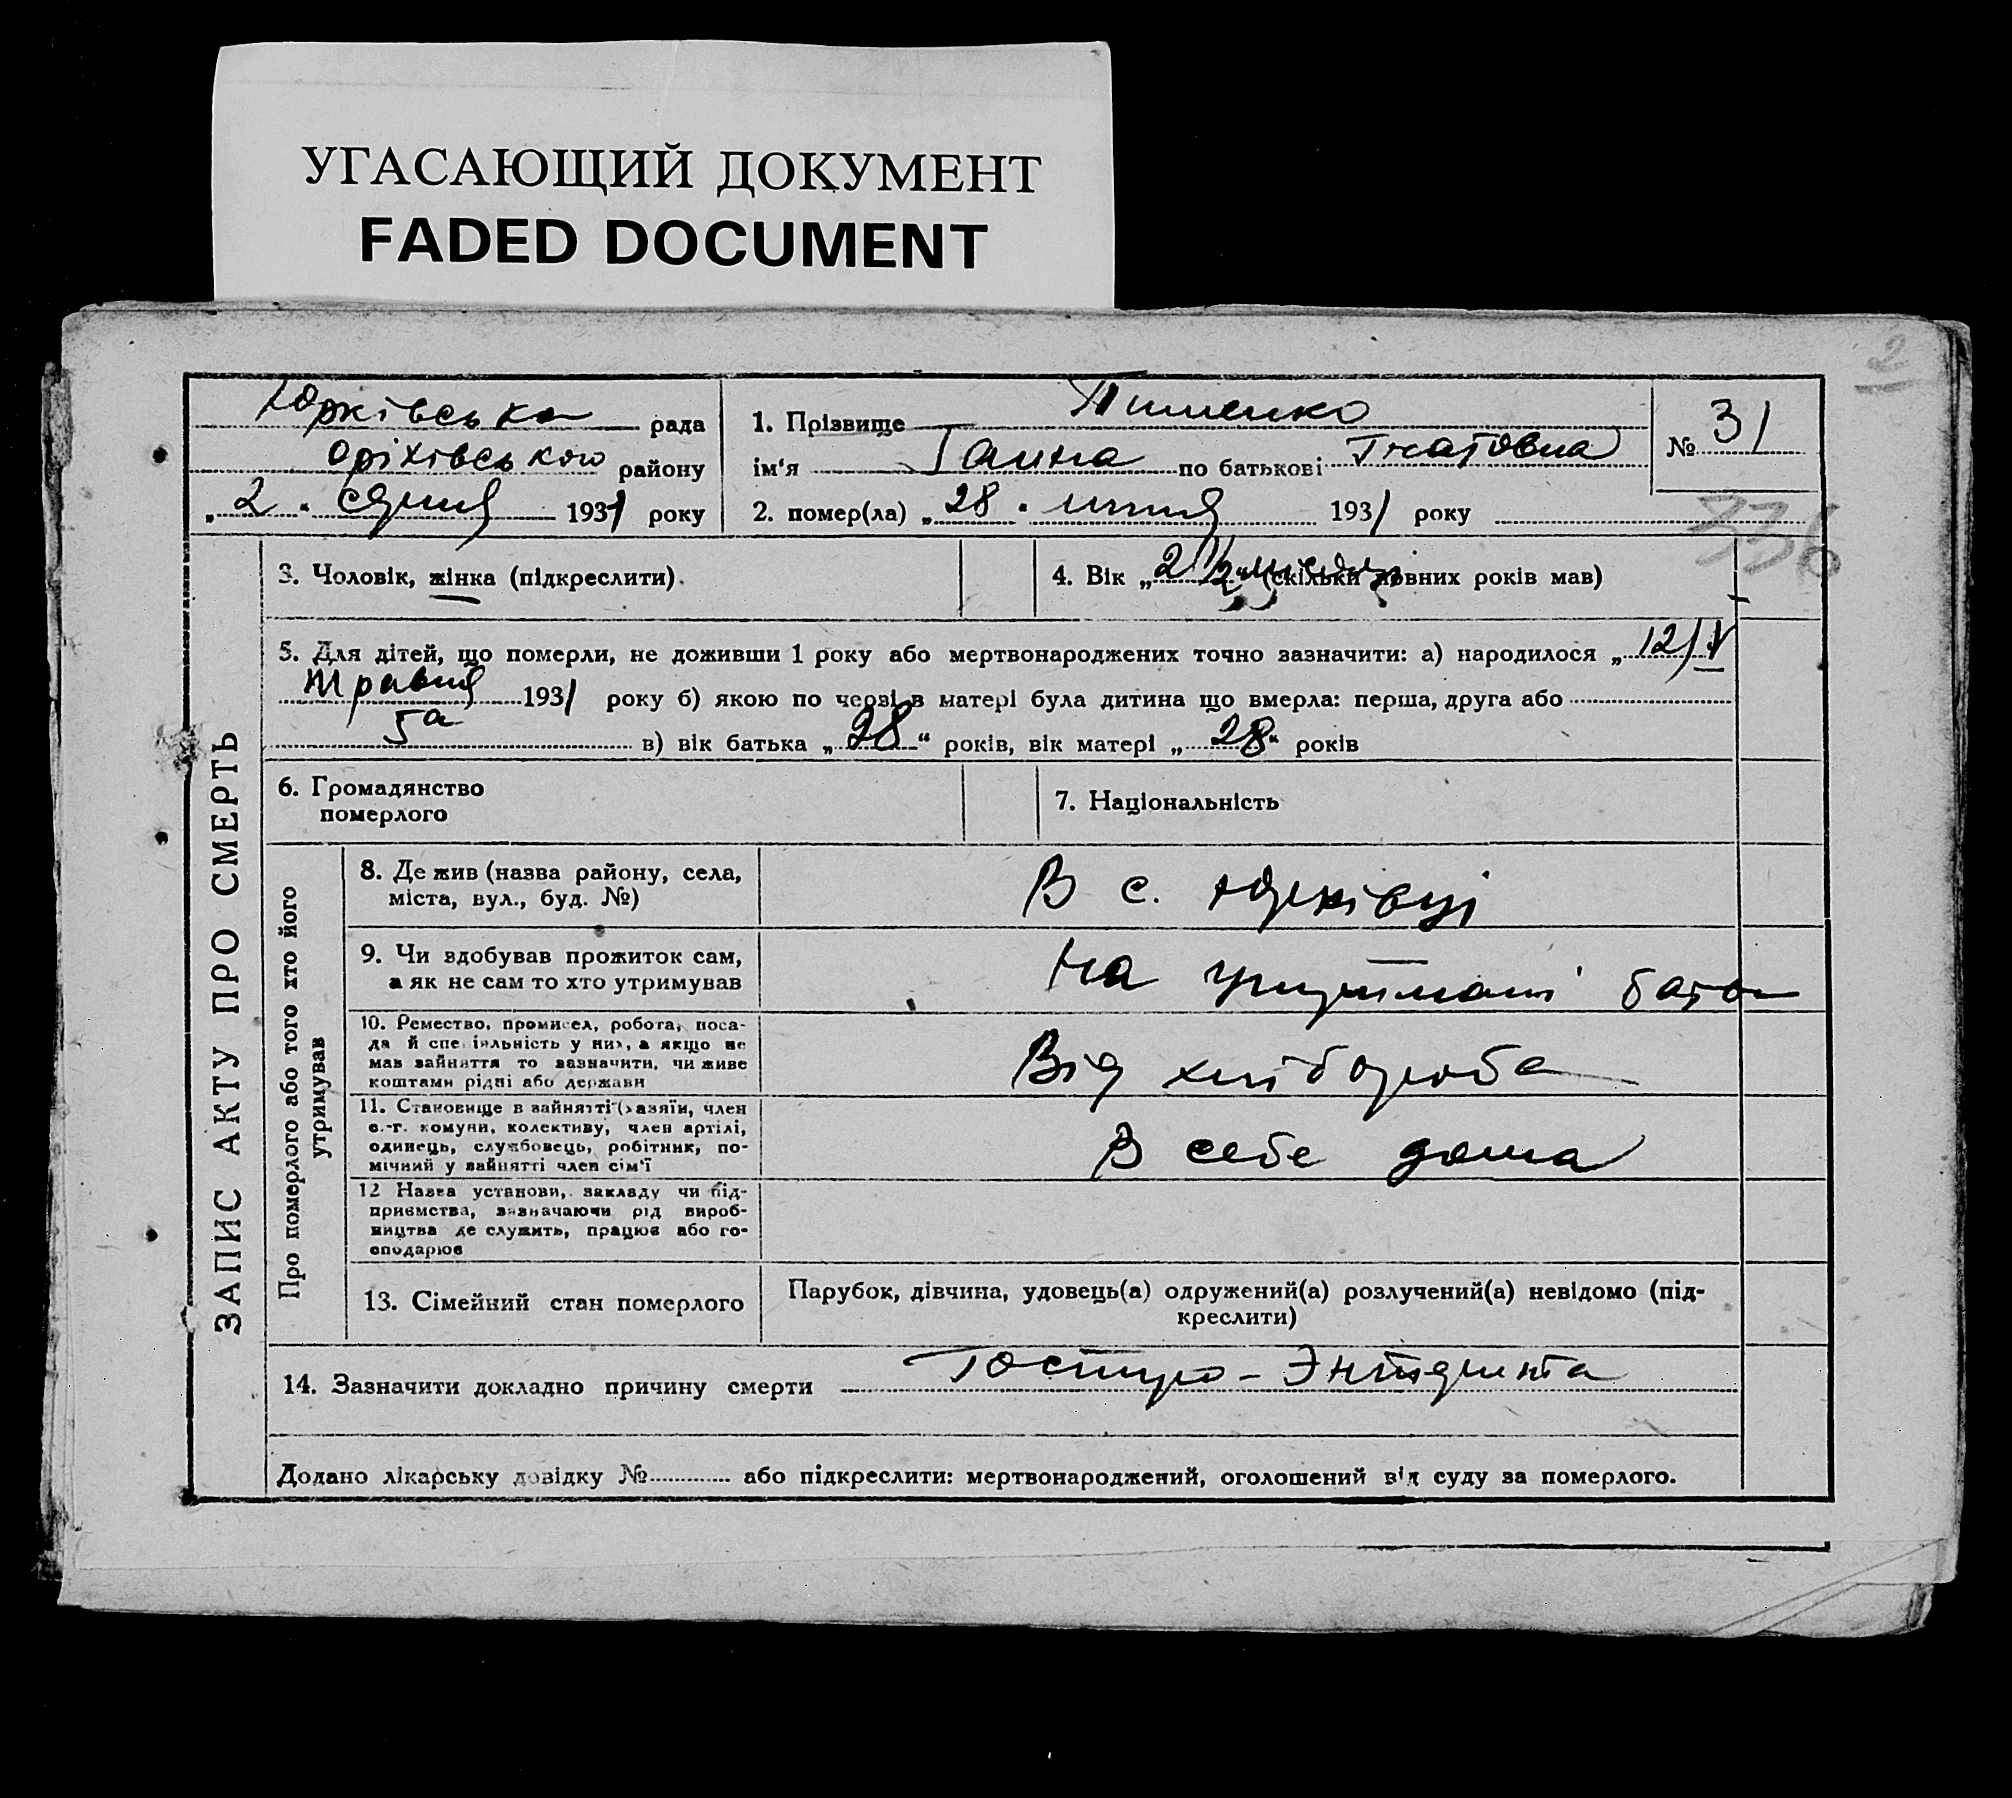 УГАСАЮЩИЙ ДОКУМЕНТ
FADED DOCUMENT
2
Юрківська рада
Оріхівського району
„2“ серпня 1931 року
1. Прізвище Тименко
ім'я Ганна по батькові Гнатовна
2. помер(ла) „28“ липня 1931 року
№ 31
336
ЗАПИС АКТУ ПРО СМЕРТЬ
3. Чоловік, жінка (підкреслити).
4. Вік „2 1/2“ місяці (скільки повних років мав)
5. Для дітей, що померли, не доживши 1 року або мертвонароджених точно зазначити: а) народилося „12/V
травня 1931 року б) якою по черзі в матері була дитина що вмерла: перша, друга або
5а в) вік батька „28“ років, вік матері „28“ років
6. Громадянство
померлого
7. Національність
Про померлого або того хто його
утримував
8. Де жив (назва району, села,
міста, вул., буд. №)
В с. Юрківці
9. Чи здобував прожиток сам,
а як не сам то хто утримував
На утриманні батька
10. Ремество, промисел, робота, поса-
да й спеціяльність у них, а якщо не
мав зайняття то зазначити, чи живе
коштами рідні або держави
Від хлібороба
11. Становище в зайнятті (хазяїн, член
с.-г. комуни, колективу, член артілі,
одинець, службовець, робітник, по-
мічний у зайнятті член сім'ї
В себе дома
12 Назва установи, закладу чи під-
приємства, зазначаючи рід вироб-
ництва де служить, працює або го-
сподарює
13. Сімейний стан померлого
Парубок, дівчина, удовець(а) одружений(а) розлучений(а) невідомо (під-
креслити)
14. Зазначити докладно причину смерти
Додано лікарську довідку № або підкреслити: мертвонароджений, оголошений від суду за померлого.